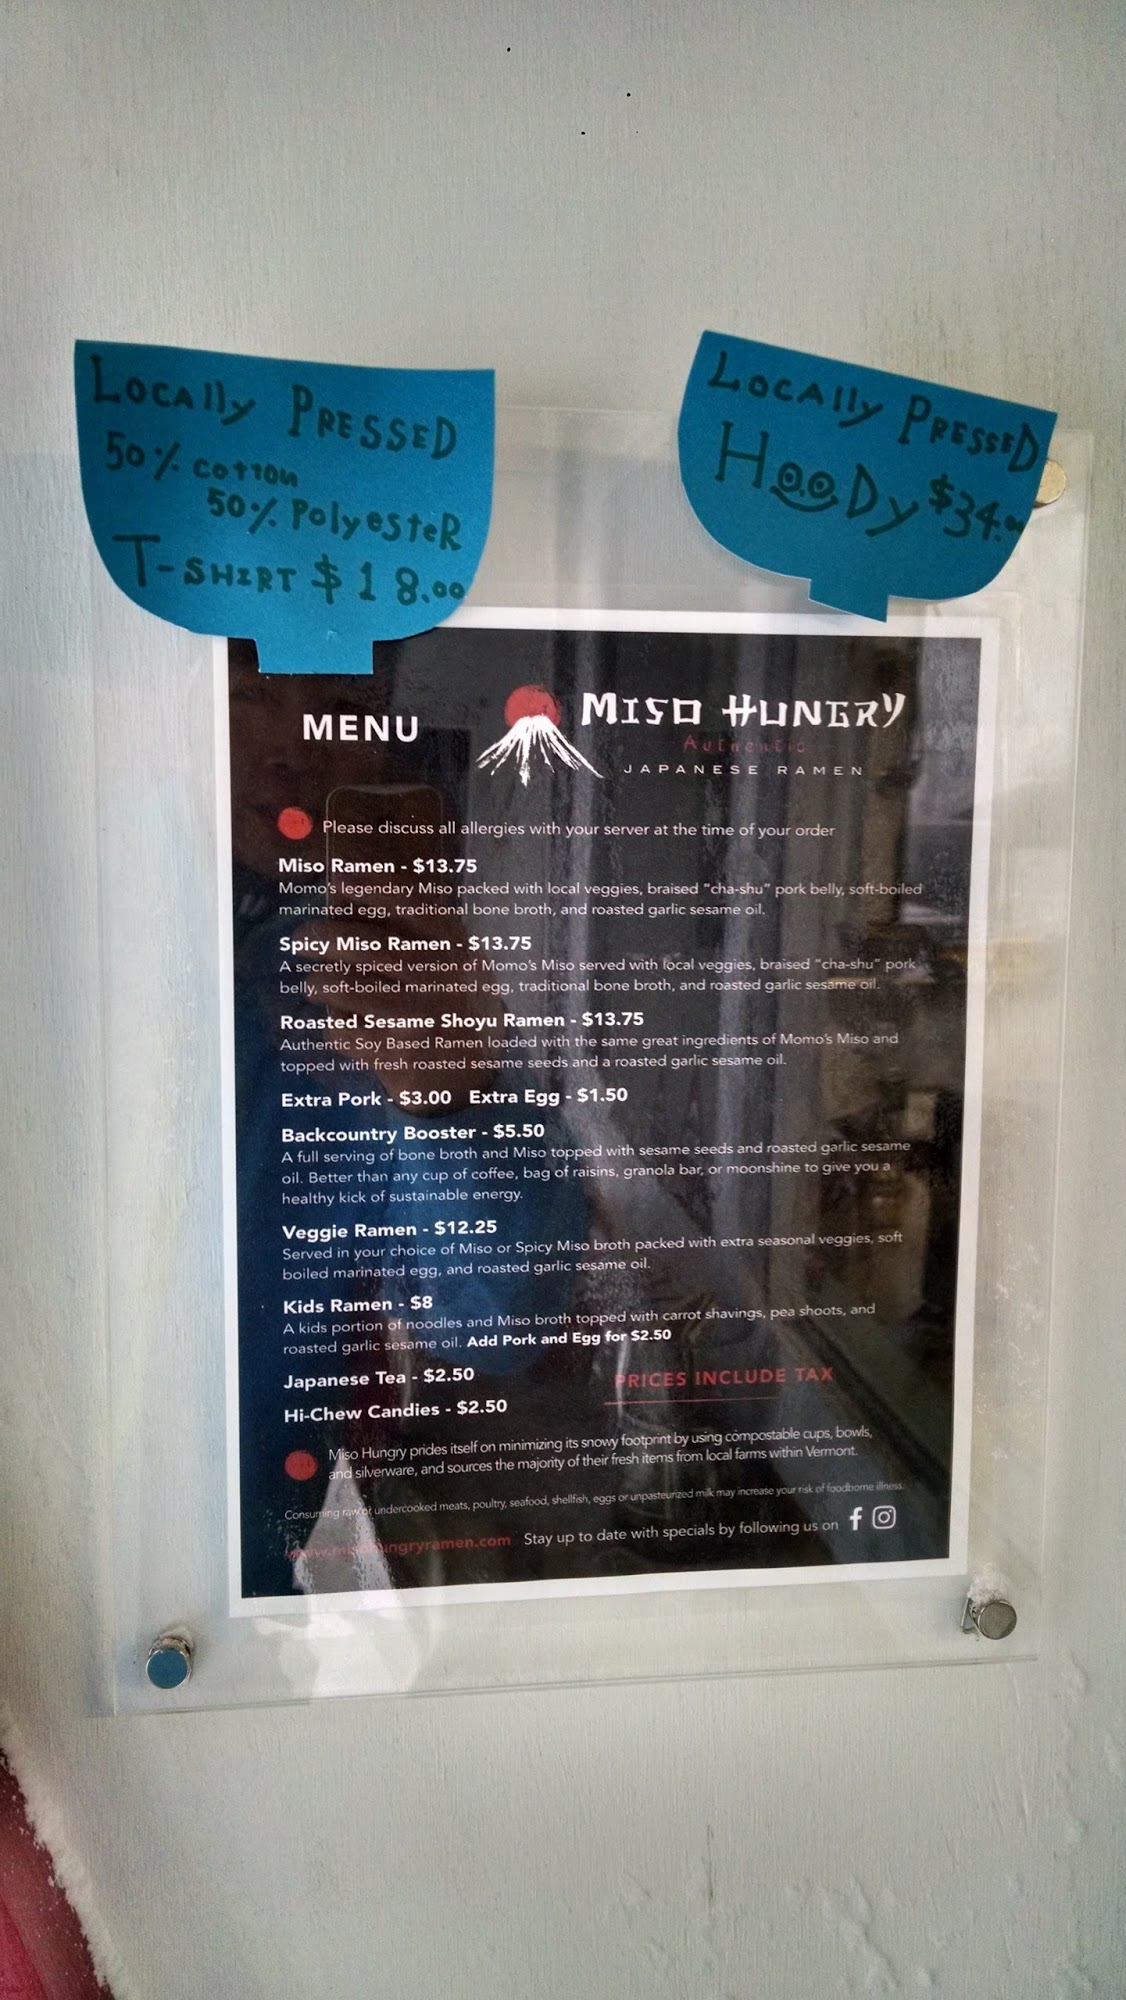 LOCAlly PRESSED
50% COTTON
50% PolyesteR
T-SHIRT $18.00
LOCAlly PRESSED
HooDy $34.00
MENU
MISO HUNGRY
Authentic
JAPANESE RAMEN
Please discuss all allergies with your server at the time of your order
Miso Ramen - $13.75
Momo's legendary Miso packed with local veggies, braised "cha-shu" pork belly, soft-boiled
marinated egg, traditional bone broth, and roasted garlic sesame oil.
Spicy Miso Ramen - $13.75
A secretly spiced version of Momo's Miso served with local veggies, braised "cha-shu" pork
belly, soft-boiled marinated egg, traditional bone broth, and roasted garlic sesame oil.
Roasted Sesame Shoyu Ramen - $13.75
Authentic Soy Based Ramen loaded with the same great ingredients of Momo's Miso and
topped with fresh roasted sesame seeds and a roasted garlic sesame oil.
Extra Pork - $3.00 Extra Egg - $1.50
Backcountry Booster - $5.50
A full serving of bone broth and Miso topped with sesame seeds and roasted garlic sesame
oil. Better than any cup of coffee, bag of raisins, granola bar, or moonshine to give you a
healthy kick of sustainable energy.
Veggie Ramen - $12.25
Served in your choice of Miso or Spicy Miso broth packed with extra seasonal veggies, soft
boiled marinated egg, and roasted garlic sesame oil.
Kids Ramen - $8
A kids portion of noodles and Miso broth topped with carrot shavings, pea shoots, and
roasted garlic sesame oil. Add Pork and Egg for $2.50
Japanese Tea - $2.50
PRICES INCLUDE TAX
Hi-Chew Candies - $2.50
Miso Hungry prides itself on minimizing its snowy footprint by using compostable cups, bowls,
and silverware, and sources the majority of their fresh items from local farms within Vermont.
Consuming raw or undercooked meats, poultry, seafood, shellfish, eggs or unpasteurized milk may increase your risk of foodborne illness.
www.misohungryramen.com Stay up to date with specials by following us on